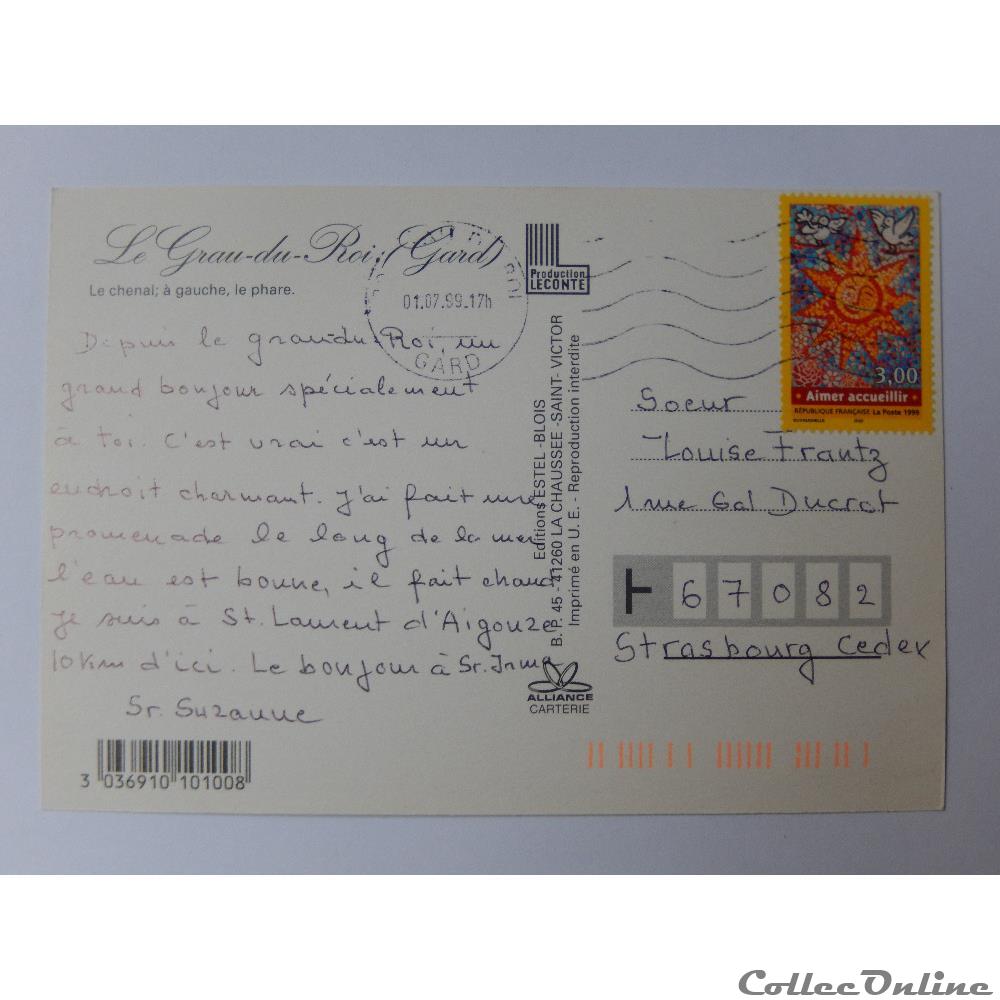 Le Grau-du-Roi, (Gard)
Le chenal; à gauche, le phare.
Depuis le grau-du-Roi, un
grand bonjour spécialement
à toi. C'est vrai c'est un
endroit charmant. J'ai fait une
promenade le long de la mer
l'eau est bonne, il fait chaud
je suis à St. Laurent d'Aigouze
10 Km d'ici. Le bonjour à Sr. Irma
Sr. Suzanne
3 036910 101008
01.07.99.17h
GARD
Production
LECONTE
Editions ESTEL - BLOIS
B. P. 45 - 41260 LA CHAUSSEE - SAINT- VICTOR
Imprimé en U. E. - Reproduction interdite
ALLIANCE
CARTERIE
3,00
Aimer accueillir
RÉPUBLIQUE FRANÇAISE La Poste 1999
Soeur
Louise Frantz
1 rue Gal Ducrot
67082
Strasbourg Cedex
CollecOnline